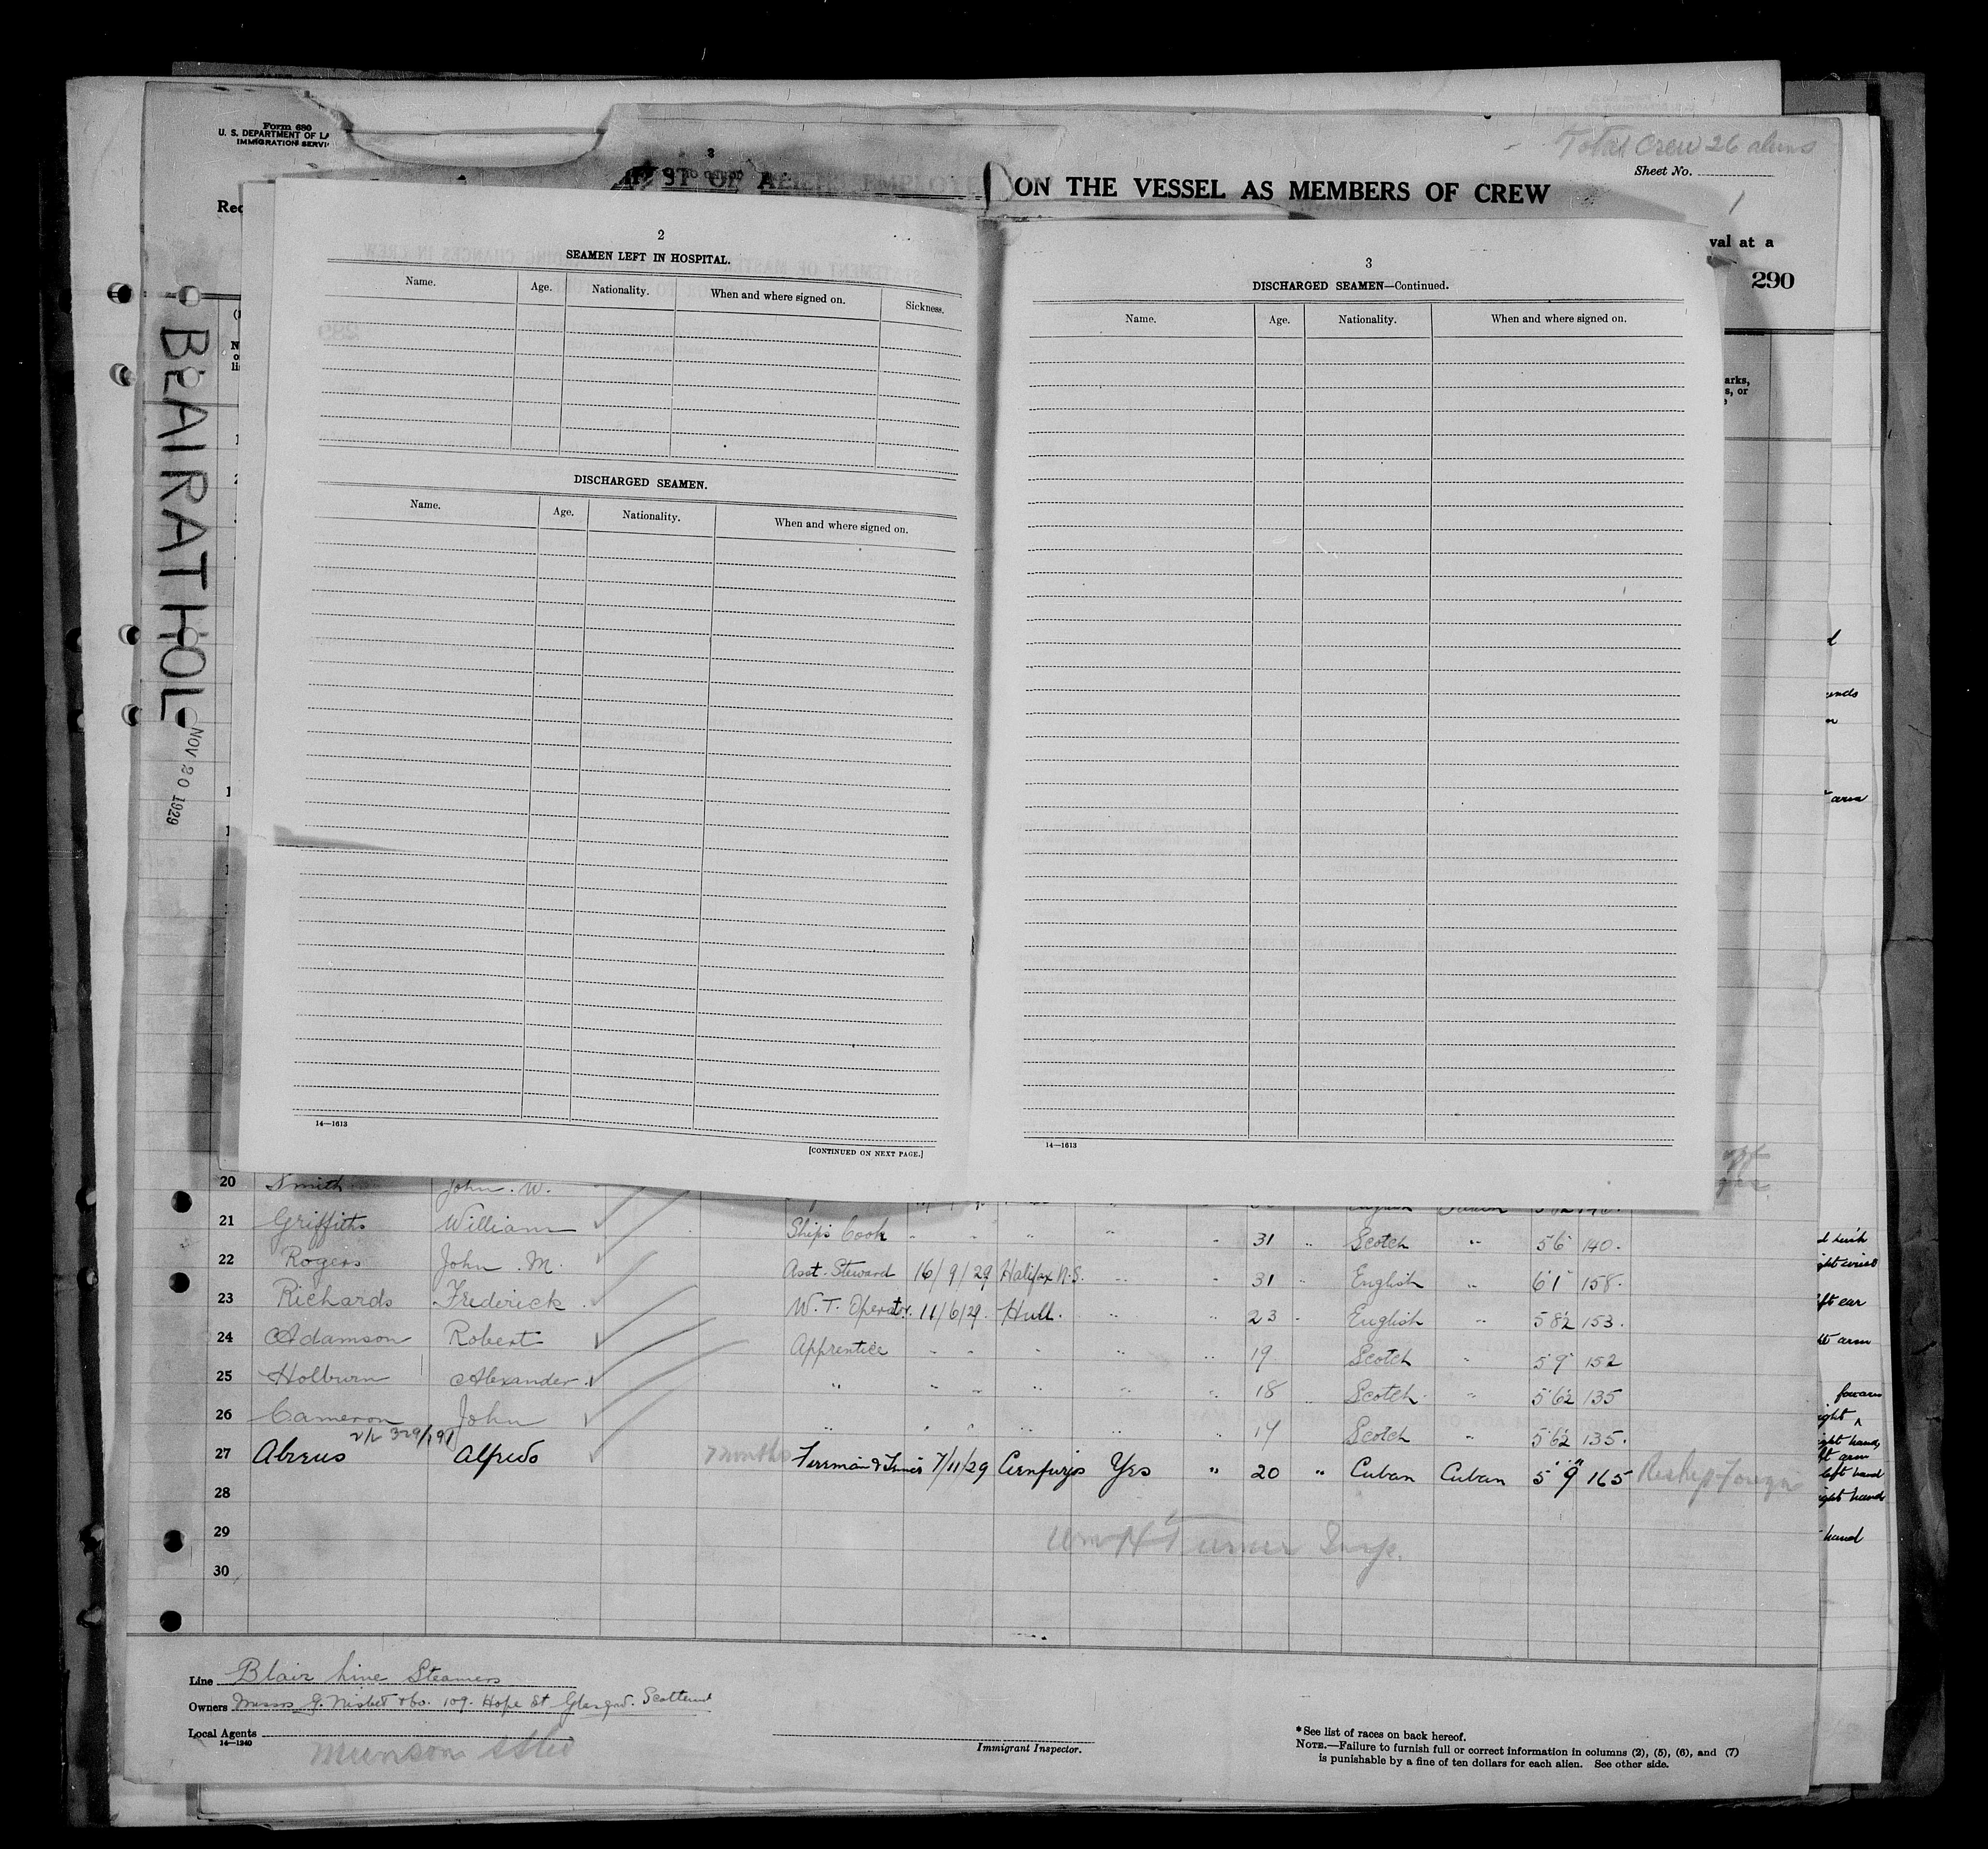 Form 680
U. S. DEPARTMENT OF
IMMIGRATION
Total Crew 26 aliens
Sheet No.
1
ON THE VESSEL AS MEMBERS OF CREW
val at a
290
BLAIRATHOL
NOV 20 1929
2
SEAMEN LEFT IN HOSPITAL.
Name. Age. Nationality. When and where signed on. Sickness.
DISCHARGED SEAMEN.
Name. Age. Nationality. When and where signed on.
14—1613
[CONTINUED ON NEXT PAGE.]
3
DISCHARGED SEAMEN—Continued.
Name. Age. Nationality. When and where signed on.
14—1613
arks,
s, or
20 Smith John. W.
21 Griffiths William Ships Cook " " " " " 31 " Scotch " 5 6 140.
22 Rogers John. M. Asst. Steward 16/9/29 Halifax N.S. " " 31 " English " 6 1 158.
23 Richards Frederick W. T. Operator. 11/6/29. Hull. " " 23 " English " 5 8½ 153.
24 Adamson Robert Apprentice " " " " " 19 Scotch " 5 9 152
25 Holburn Alexander " " " " " " 18 " Scotch " 5 6½ 135
26 Cameron John " " " " " " 17 Scotch " 5 6½ 135.
27 Abreus Alfredo 7 months 7/11/29 Yes " 20 " Cuban Cuban 5' 9" 165
28
29
30
Wm H Turner Insp.
Line Blair Line Steamers
Owners Messrs G. Nisbet & Co. 109. Hope St Glasgow. Scotland
Local Agents
14—1240
Munson
Immigrant Inspector.
*See list of races on back hereof.
NOTE.—Failure to furnish full or correct information in columns (2), (5), (6), and (7)
is punishable by a fine of ten dollars for each alien. See other side.
arm
left ear
arm
right
right hand
left hand
right hand
hand